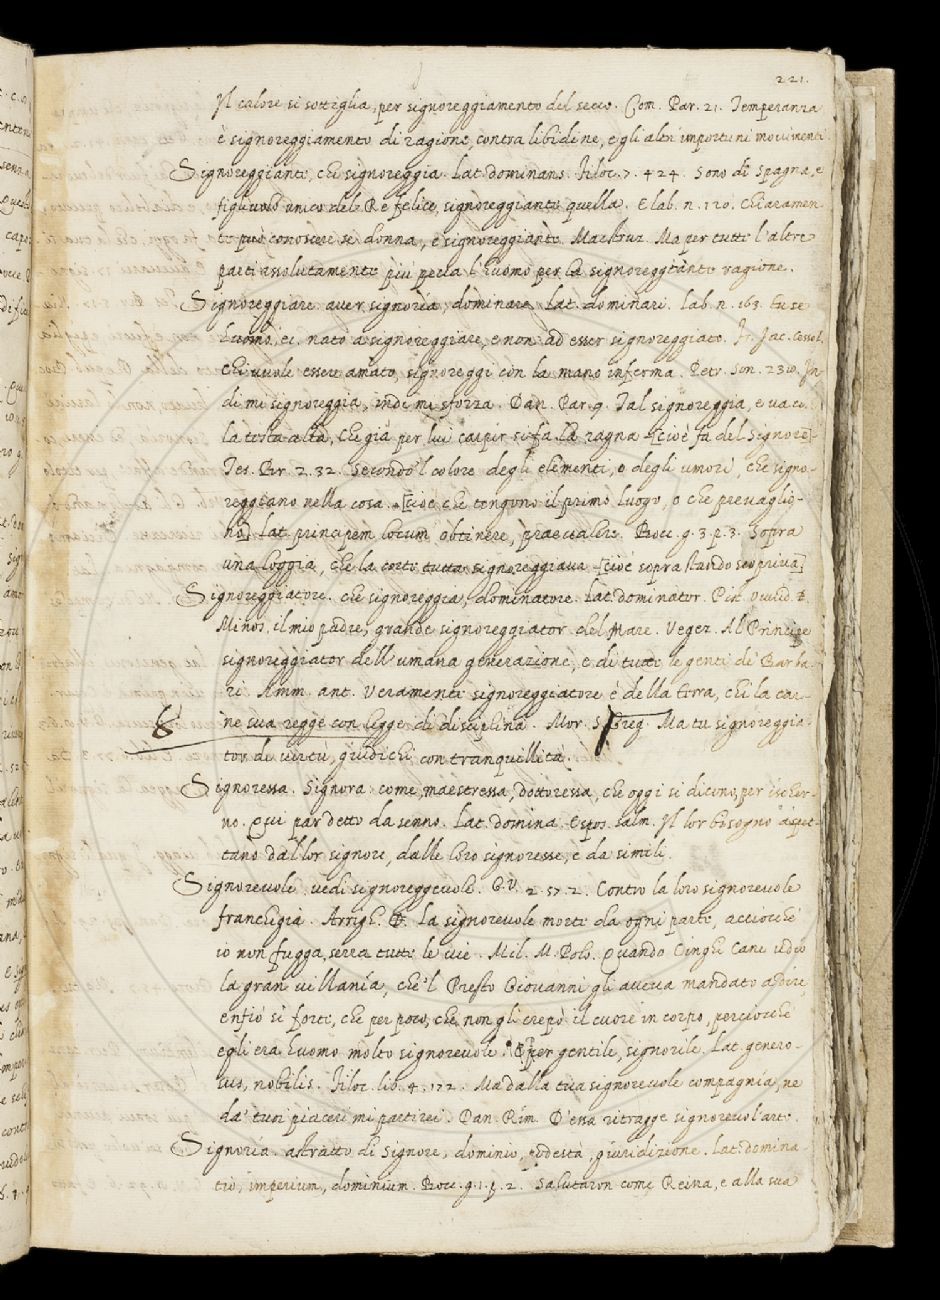 221.
Il calore si sottiglia, per signoreggiamento del secco. Com. Par. 21. Temperanza
è signoreggiamento di ragione, contra libidine, e gli altri importuni movimenti.
Signoreggiante, che signoreggia. Lat. dominans. Filoc. 7. 424. Sono di Spagna, e
figliuolo unico del Re felice, signoreggiante quella. E lab. n. 120. Chiaramen-
te può conoscere se donna, è signoreggiante. Maestruz. Ma per tutte l'altre
parti assolutamente più pecca l'huomo per la signoreggiante ragione.
Signoreggiare. aver signoria, dominare. Lat. dominari. Lab. n. 163. Tu se
huomo, ei, nato a signoreggiare, e non ad esser signoreggiato. Fr. Jac. Cessol.
Chi vuole essere amato, signoreggi con la mano inferma. Petr. Son. 230. In-
di mi signoreggia, indi mi sforza. Dan. Par. 9. Tal signoreggia, e va co
la testa alta, che già per lui carpir si fa la ragna [cioè fa del Signore]
Tes. Br. 2. 32. Secondo 'l colore degli elementi, o degli umori, che signo-
reggiano nella cosa. [cioè che tengono il primo luogo, o che prevaglio-
no] Lat. principem locum obtinere, praevalere. Bocc. g. 3. p. 3. Sopra
una loggia, che la corte tutta signoreggiava [cioè sopra stando scopriva]
Signoreggiatore. che signoreggia, dominatore. Lat. dominator. Pist. Ovvid.
Minos, il mio padre, grande signoreggiator del Mare. Vegez. Al Principe
signoreggiator dell'umana generazione, e di tutte le genti de' Barba-
ri. Amm. ant. Veramente signoreggiatore è della terra, chi la car-
ne sua regge con legge di disciplina. Mor. S. Greg. Ma tu signoreggia-
tor di virtù, giudichi con tranquillità.
Signoressa. Signora: come, maestressa, dottoressa, che oggi si dicono, per ischer-
no. Qui par detto da senno. Lat. domina. Espos. salm. Il lor bisogno aspet-
tano dal lor signore, dalle loro signoresse, e da simili.
Signorevole. vedi signoreggevole. G.V. 2. 57. 2. Contro la loro signorevole
franchigia. Arrigh. La signorevole morte da ogni parte, acciocché
io non fugga, serra tutte le vie. Mil. M. Polo. Quando Cinghi Cane udio
la gran villania, che 'l Presto Giovanni gli aveva mandato a dire,
enfiò sì forte, che per poco, che non gli crepò il cuore in corpo, perciocché
egli era huomo molto signorevole. Per gentile, signorile. Lat. genero-
sus, nobilis. Filoc. lib. 4. 172. Ma dalla tua signorevole compagnia, ne
da' tuoi piaceri mi partirei. Dan. Rim. D'essa ritragge signorevol'arte.
Signoria. astratto di Signore, dominio, podestà, giuridizione. Lat. domina-
tio, imperium, dominium. Bocc. g. 1. f. 2. Salutaron come Reina, e alla sua